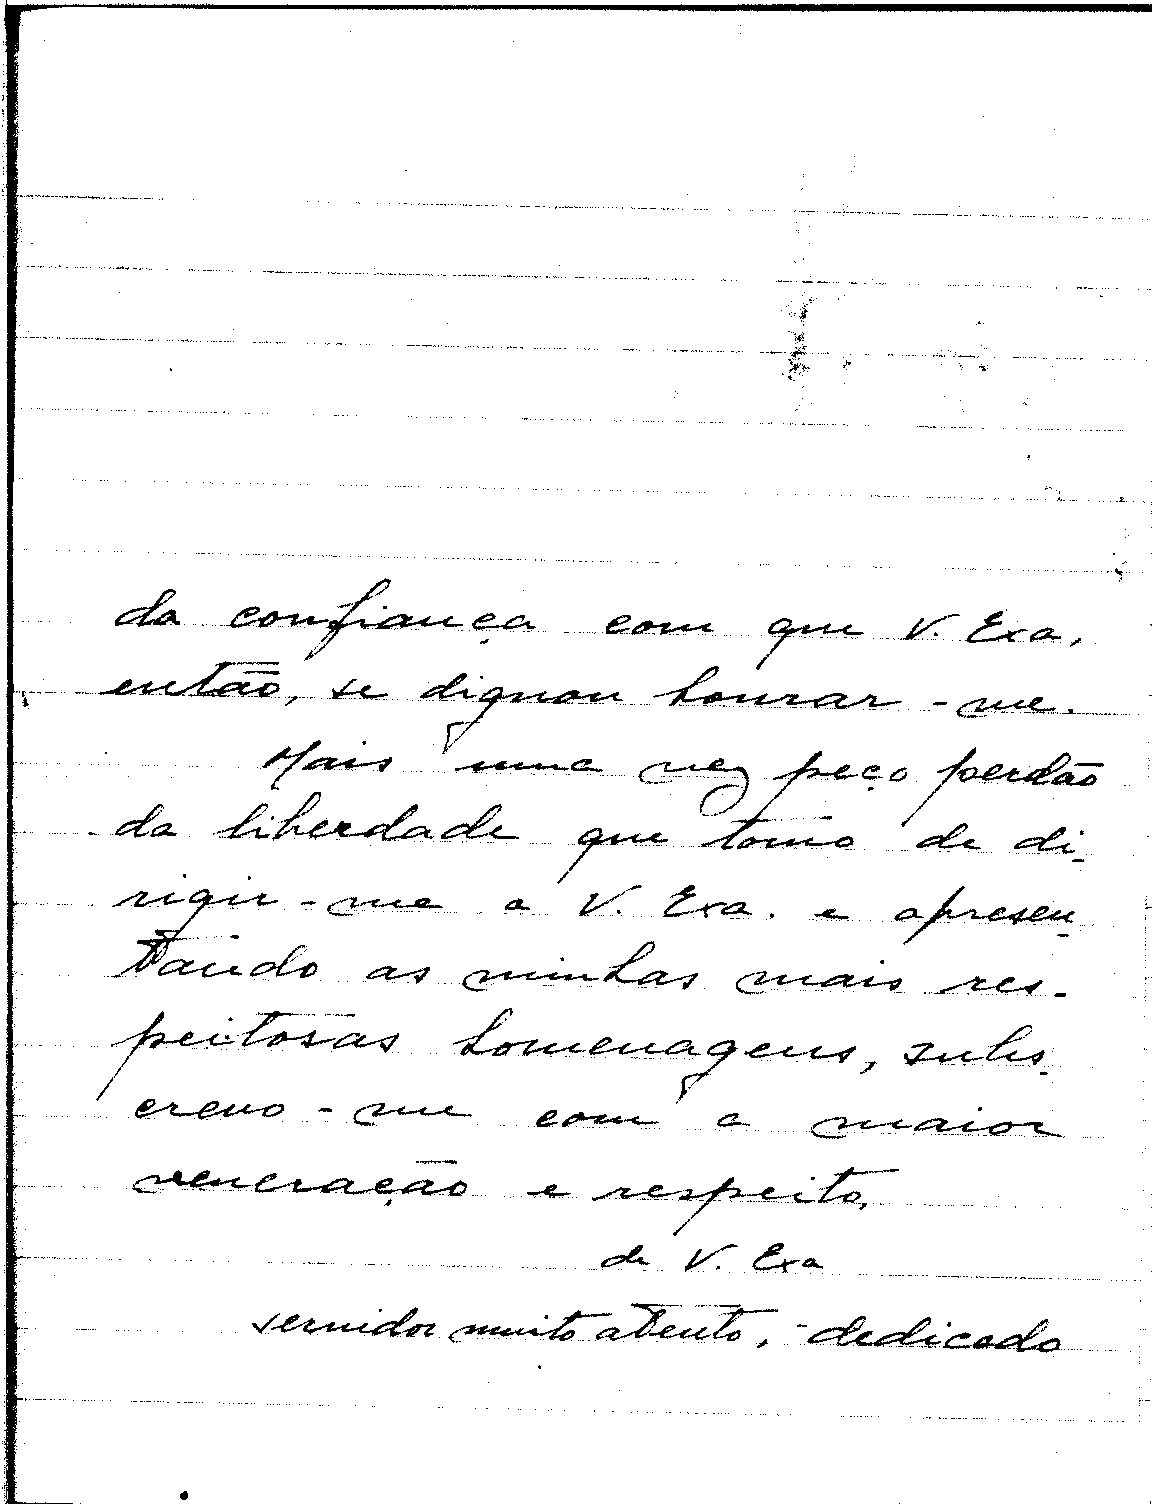 da confiança com que V. Exa,
então, se dignou honrar-me.
Mais uma vez peço perdão
da liberdade que tomo de di-
rigir-me a V. Exa. e apresen-
tando as minhas mais res-
peitosas homenagens, subs-
crevo-me com a maior
veneração e respeito,
de V. Exa
servidor muito atento, dedicado